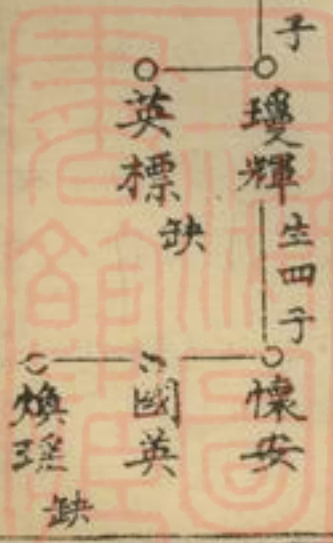 子
瓊輝
生四子
英標
缺
懷安
國英
煥瑶
缺